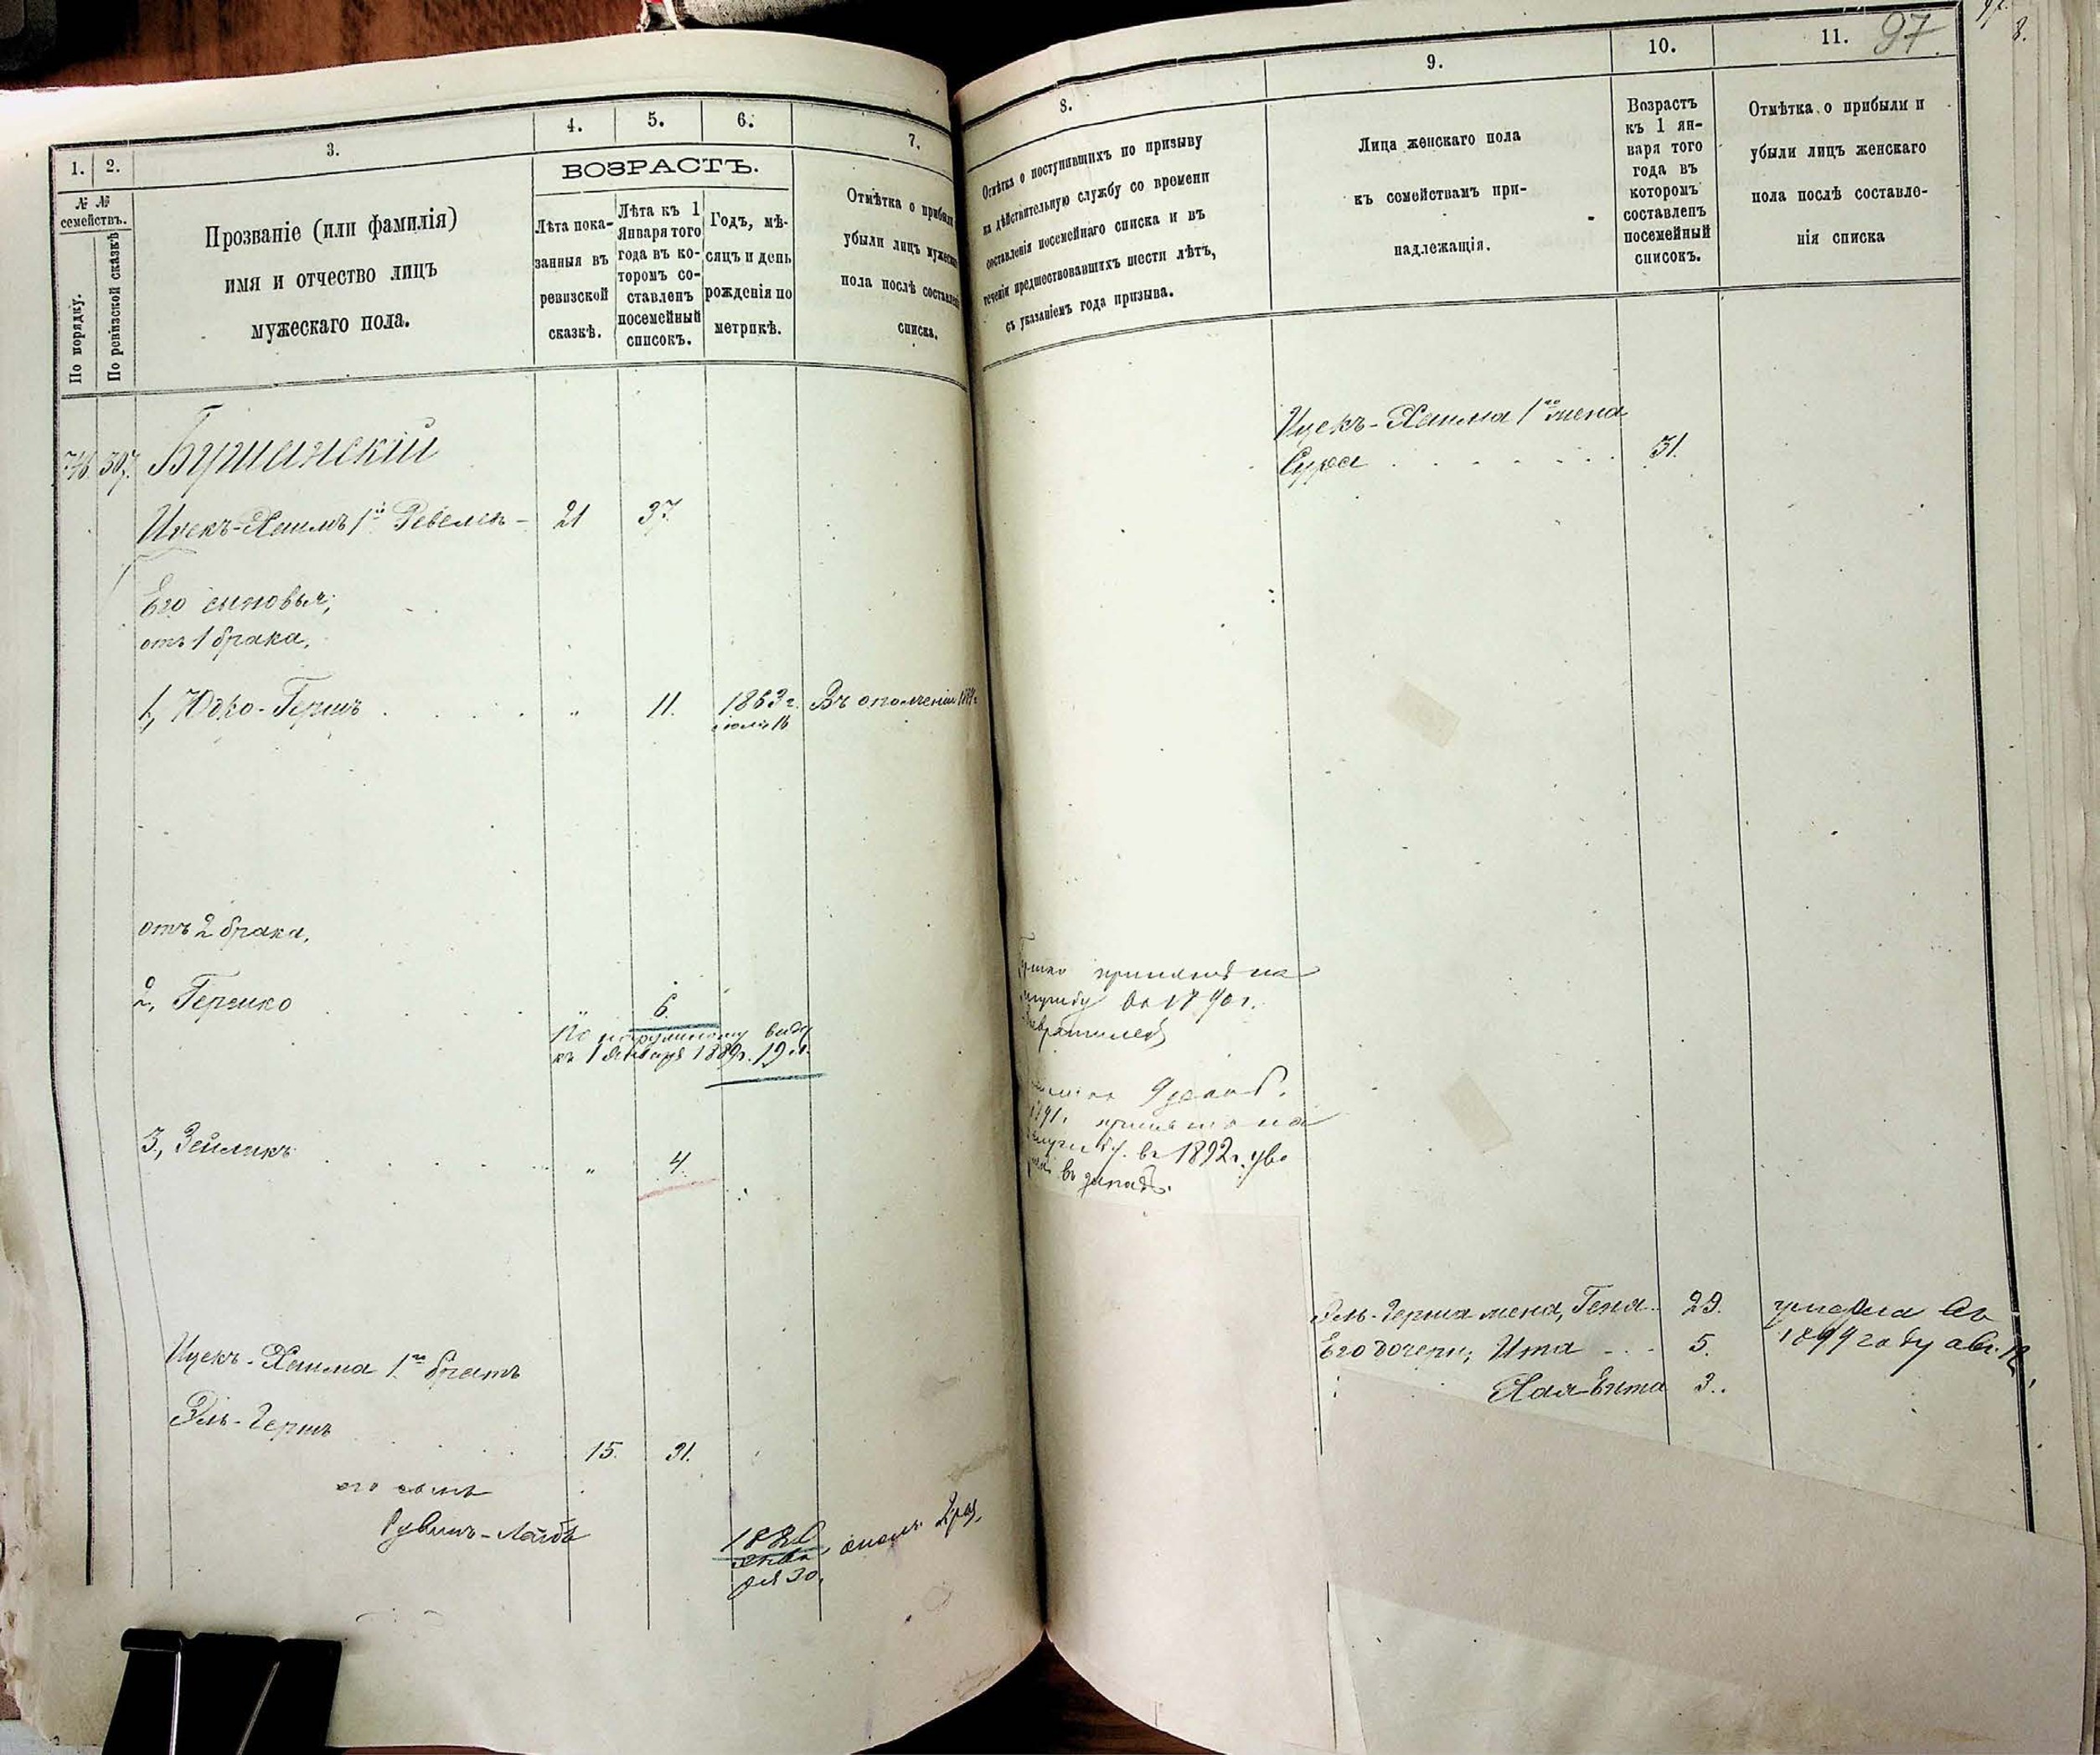 1. 2. 3. 4. 5. 6. 7.
ВОЗРАСТЪ.
№ №
семействъ.
По порядку.
По ревизской сказкѣ
Прозваніе (или фамилія)
имя и отчество лицъ
мужескаго пола.
Лѣта пока-
занныя въ
ревизской
сказкѣ.
Лѣта къ 1
Января того
года въ ко-
торомъ со-
ставленъ
посемейный
списокъ.
Годъ, мѣ-
сяцъ и день
рожденія по
метрикѣ.
Отмѣтка о прибыли
убыли лицъ мужеска
пола послѣ составлені
списка.
307. Бушанскій
Ицекъ-Хаимъ 1й 21 37.
Его сыновья;
отъ 1 брака,
1, Юдко-Гершъ . . . . „ 11. 1863 г. Въ ополченіи
іюля 16
отъ 2 брака,
2, Гершко . . . . „ 6.
По наружному виду
къ 1 Января 1889г. 19 л.
3, Зейликъ . . . . „ 4.
Ицекъ-Хаима 1го братъ
Эль-Гершъ . . . . 15. 31.
его сынъ
Рувинъ-Лейбъ
января 30,
97
8. 9. 10. 11.
Отмѣтка о поступившихъ по призыву
на дѣйствительную службу со времени
составленія посемейнаго списка и въ
теченіи предшествовавшихъ шести лѣтъ,
съ указаніемъ года призыва.
Лица женскаго пола
къ семействамъ при-
надлежащія.
Возрастъ
къ 1 ян-
варя того
года въ
которомъ
составленъ
посемейный
списокъ.
Отмѣтка о прибыли и
убыли лицъ женскаго
пола послѣ составле-
нія списка
Ицекъ-Хаима 1го жена
Сура . . . . . . . 31.
принятъ на
службу въ 1890 г.
1891. принятъ на
службу. въ 1892 г. уво
въ запасъ.
Эль-Герша жена, Геня. 29. умерла въ
Его дочери; Ита . . . 5. 1899 году авг. 12,
Хая-Ента 3..